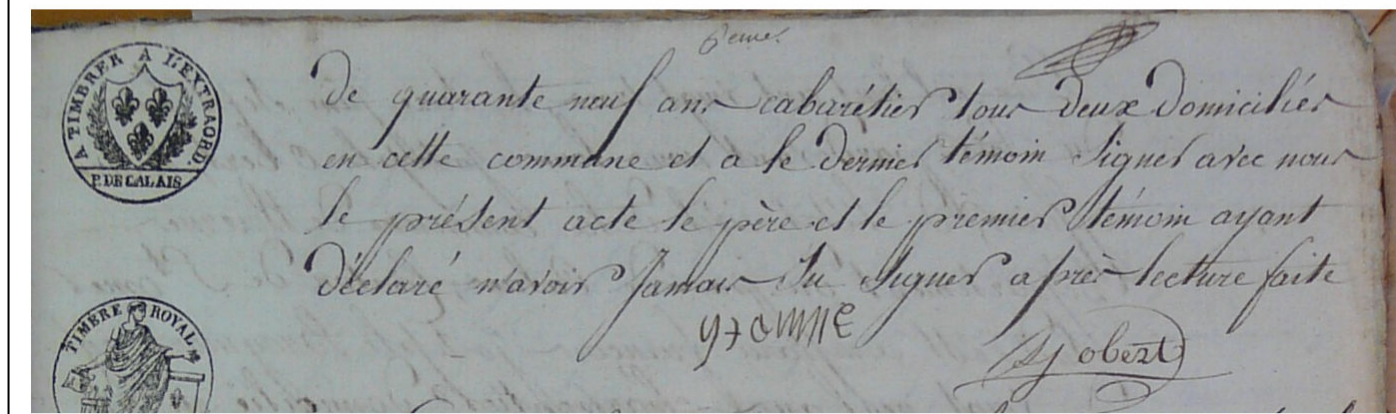 6eme.
A TIMBRER A L'EXTRAORD.
P. DE CALAIS
De quarante neuf ans cabarétier tous deux Domiciliés
en cette commune et a le dernier témoin signer avec nous
le présent acte le père et le premier témoin ayant
déclaré n'avoir Jamais Su Signer après lecture faite
TIMBRE ROYAL
Jobert